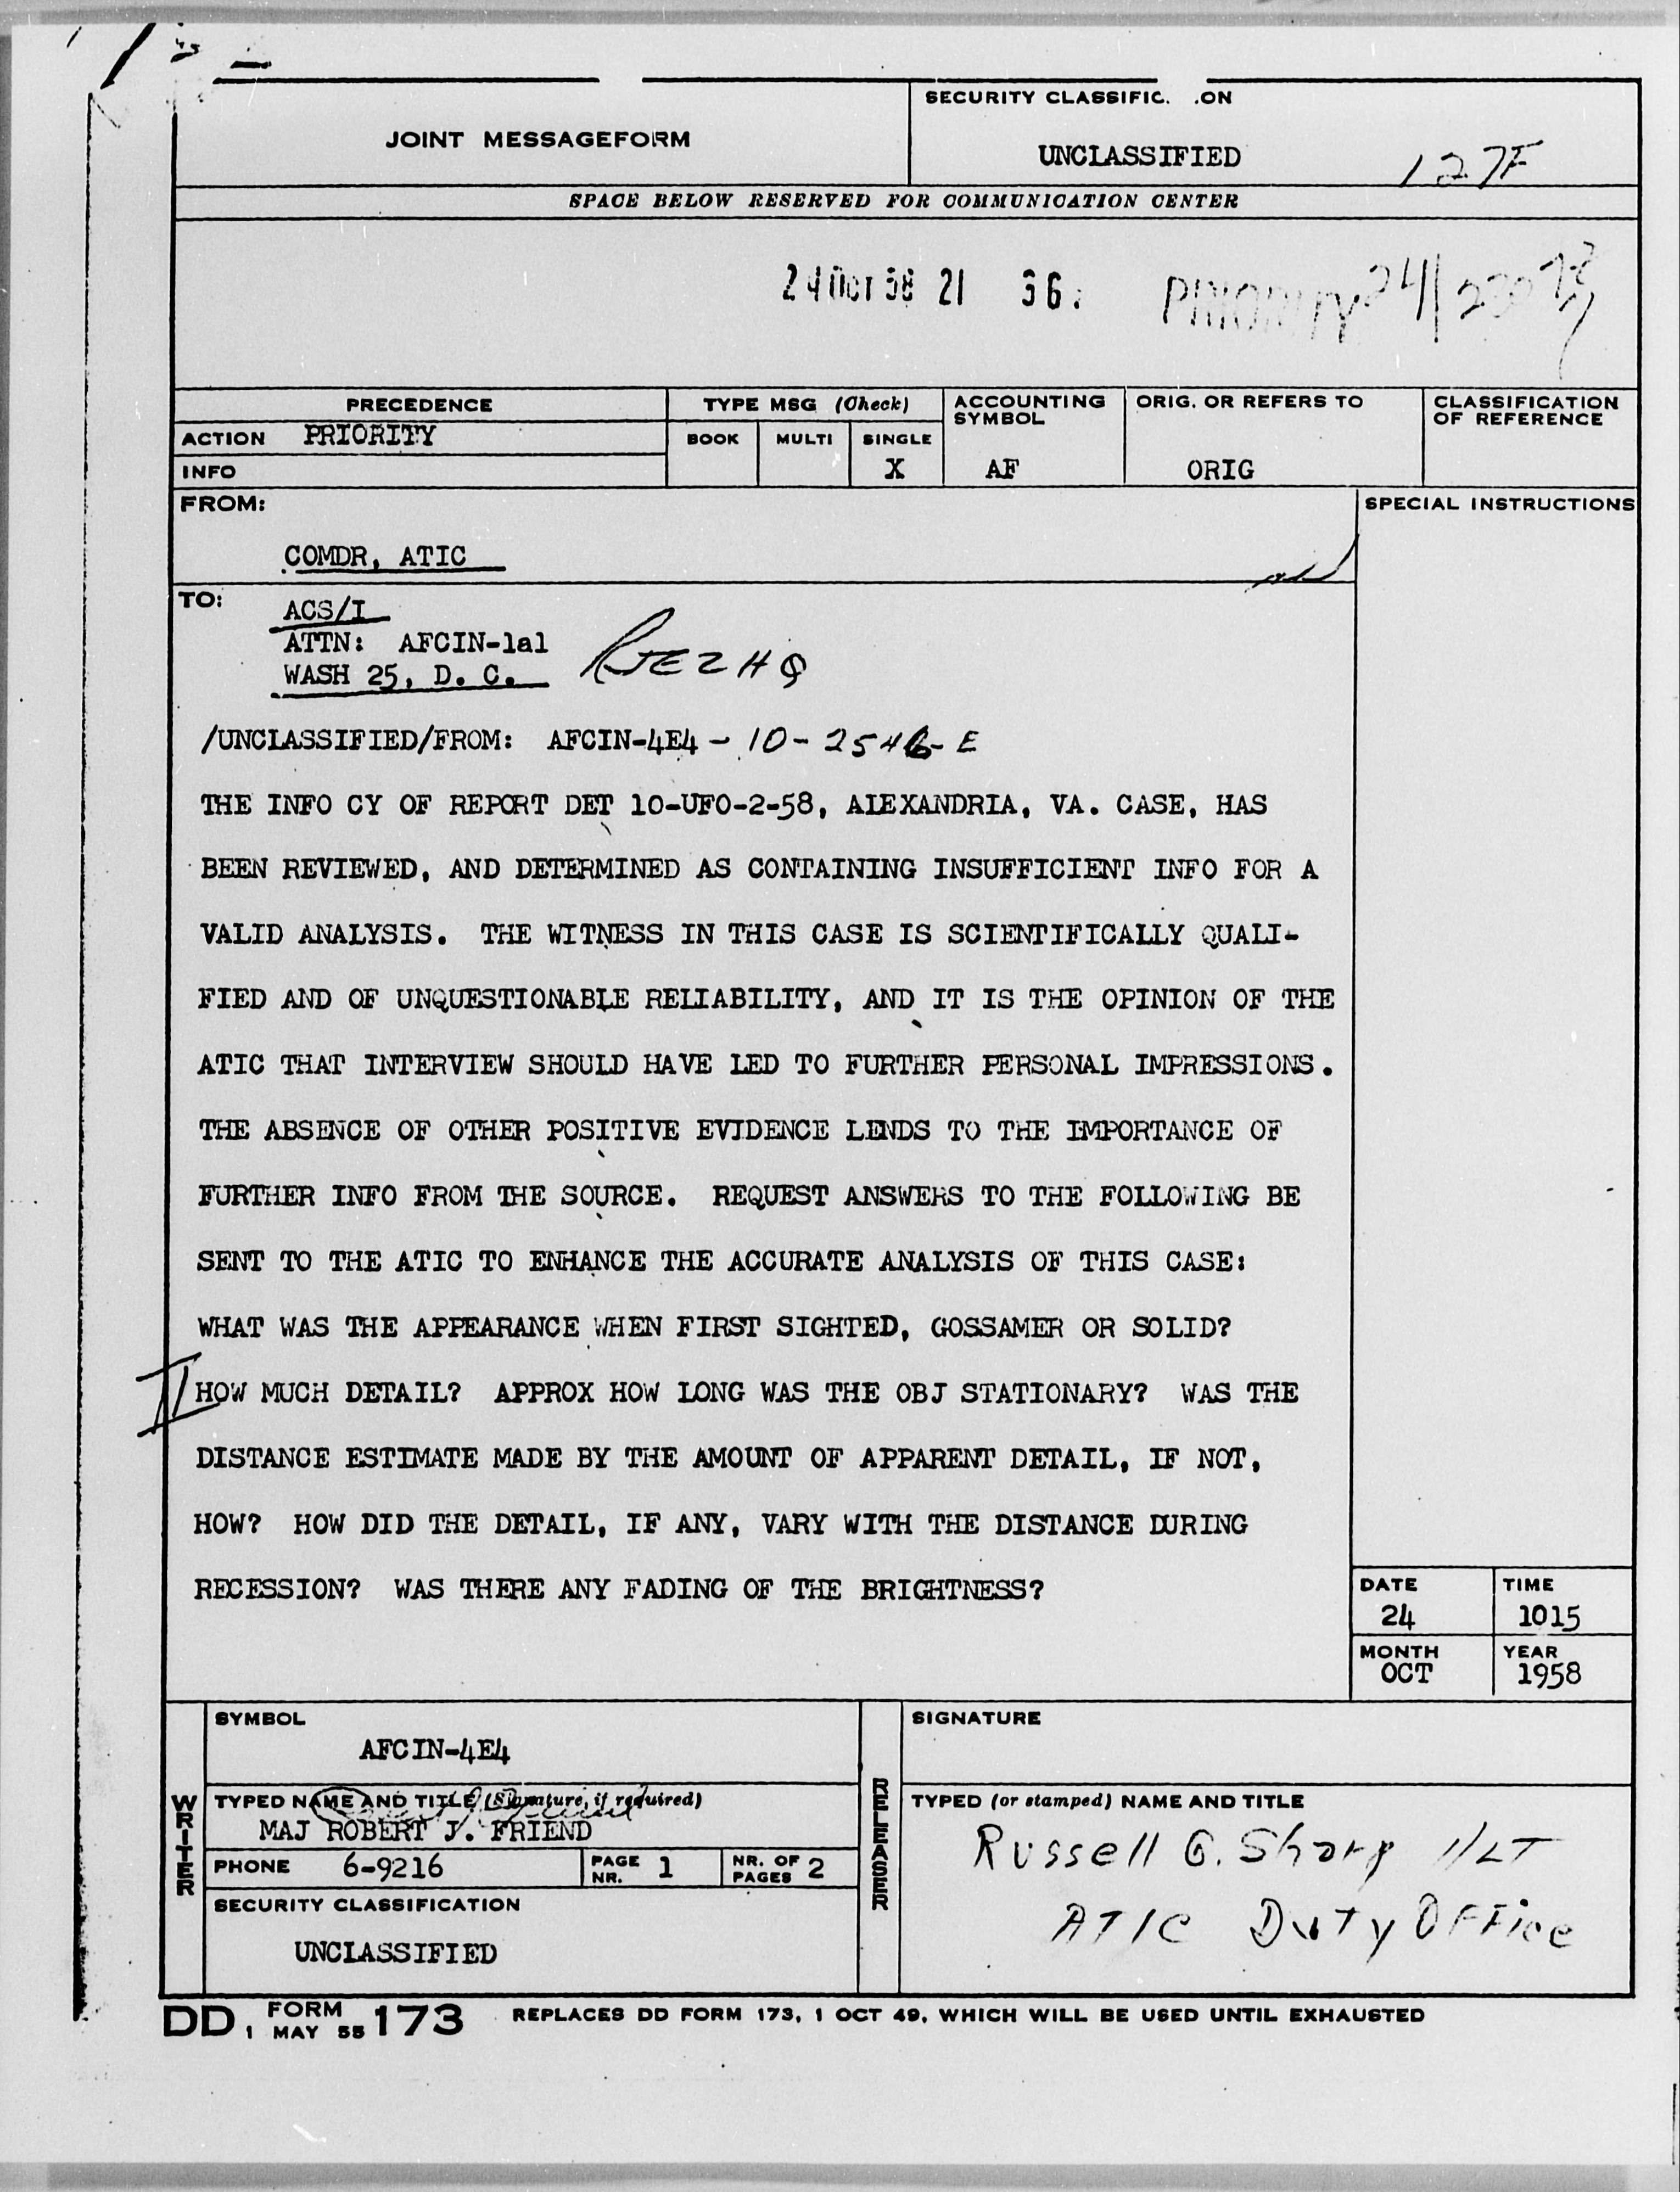 JOINT MESSAGEFORM
SECURITY CLASSIFIC. .ON
UNCLASSIFIED
127F
SPACE BELOW RESERVED FOR COMMUNICATION CENTER
24 OCT 58 21 36
PRIORITY
PRECEDENCE
ACTION PRIORITY
INFO
TYPE MSG (Check)
BOOK MULTI SINGLE
X
ACCOUNTING SYMBOL
AF
ORIG. OR REFERS TO
ORIG
CLASSIFICATION OF REFERENCE
FROM:
COMDR, ATIC
SPECIAL INSTRUCTIONS
TO:
ACS/I
ATTN: AFCIN-1a1
WASH 25, D. C.
RJEZHQ
/UNCLASSIFIED/FROM: AFCIN-4E4 - 10-2546-E
THE INFO CY OF REPORT DET 10-UFO-2-58, ALEXANDRIA, VA. CASE, HAS
BEEN REVIEWED, AND DETERMINED AS CONTAINING INSUFFICIENT INFO FOR A
VALID ANALYSIS. THE WITNESS IN THIS CASE IS SCIENTIFICALLY QUALI-
FIED AND OF UNQUESTIONABLE RELIABILITY, AND IT IS THE OPINION OF THE
ATIC THAT INTERVIEW SHOULD HAVE LED TO FURTHER PERSONAL IMPRESSIONS.
THE ABSENCE OF OTHER POSITIVE EVIDENCE LENDS TO THE IMPORTANCE OF
FURTHER INFO FROM THE SOURCE. REQUEST ANSWERS TO THE FOLLOWING BE
SENT TO THE ATIC TO ENHANCE THE ACCURATE ANALYSIS OF THIS CASE:
WHAT WAS THE APPEARANCE WHEN FIRST SIGHTED, GOSSAMER OR SOLID?
HOW MUCH DETAIL? APPROX HOW LONG WAS THE OBJ STATIONARY? WAS THE
DISTANCE ESTIMATE MADE BY THE AMOUNT OF APPARENT DETAIL, IF NOT,
HOW? HOW DID THE DETAIL, IF ANY, VARY WITH THE DISTANCE DURING
RECESSION? WAS THERE ANY FADING OF THE BRIGHTNESS?
DATE
24
TIME
1015
MONTH
OCT
YEAR
1958
WRITER
SYMBOL
AFCIN-4E4
TYPED NAME AND TITLE (Signature, if required)
MAJ ROBERT J. FRIEND
PHONE 6-9216
PAGE NR. 1
NR. OF PAGES 2
SECURITY CLASSIFICATION
UNCLASSIFIED
RELEASER
SIGNATURE
TYPED (or stamped) NAME AND TITLE
Russell G. Sharp 1/LT
ATIC Duty Office
DD FORM 1 MAY 55 173 REPLACES DD FORM 173, 1 OCT 49, WHICH WILL BE USED UNTIL EXHAUSTED